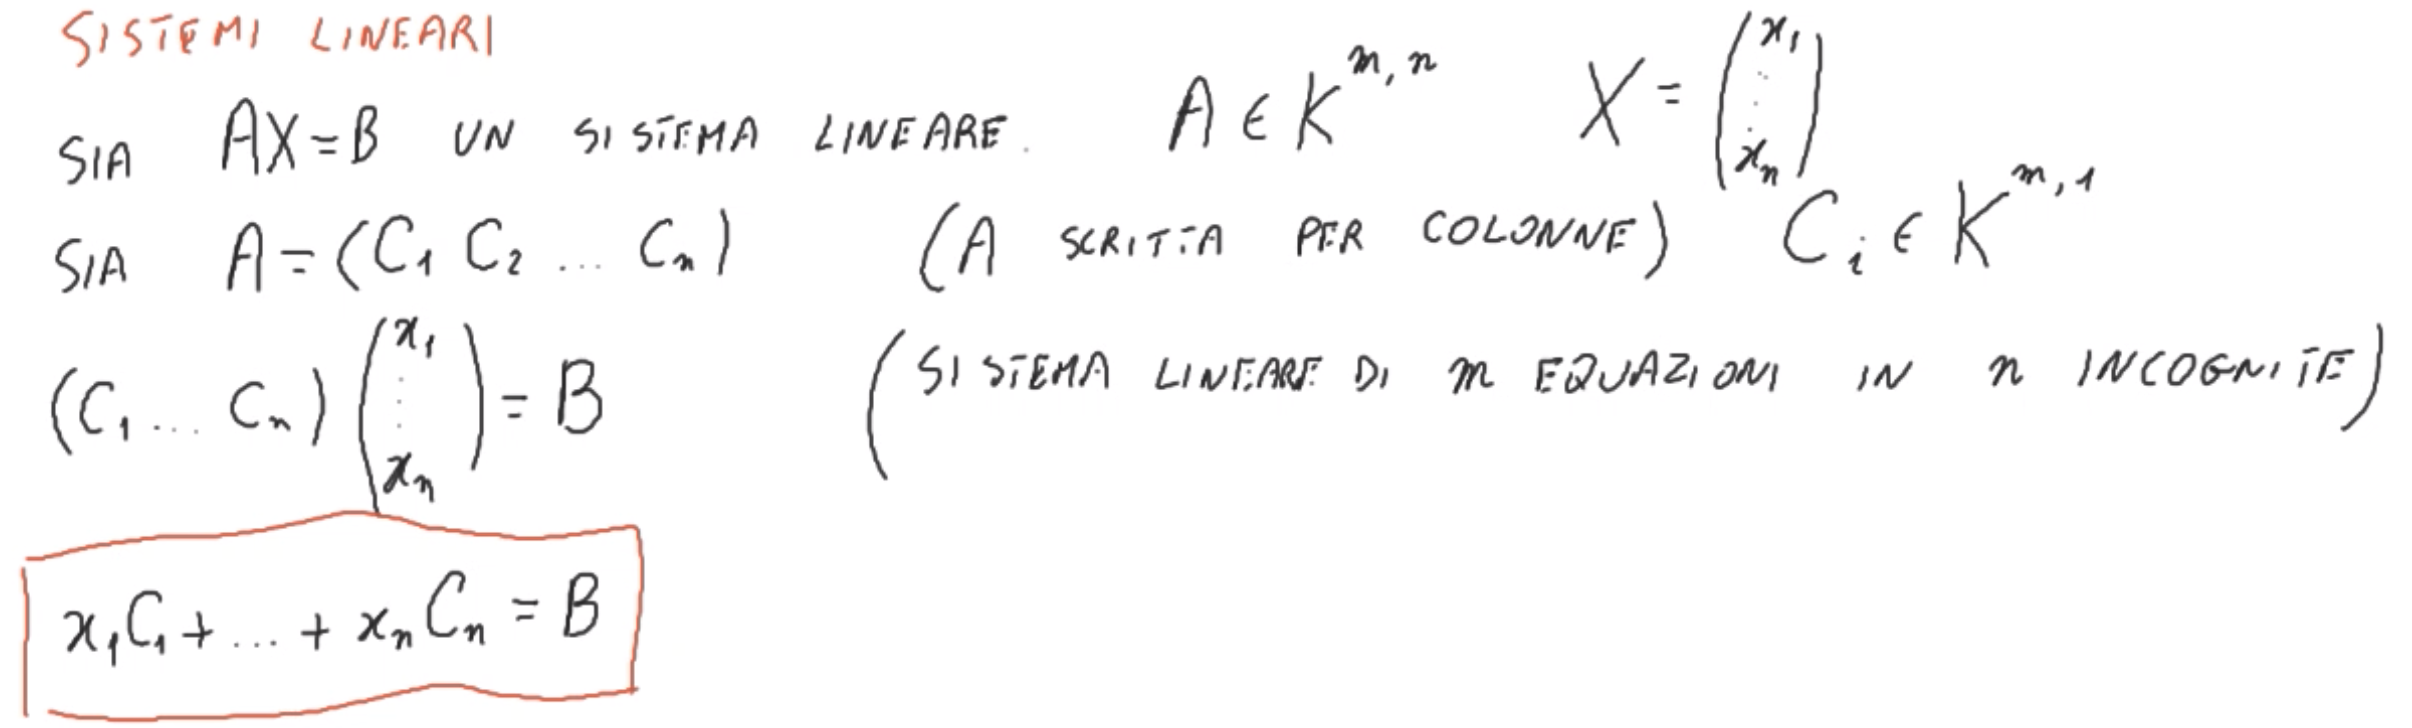 SISTEMI LINEARI
SIA AX=B UN SISTEMA LINEARE. A ∈ K^{m,n} X = \begin{pmatrix} x_1 \\ \vdots \\ x_n \end{pmatrix}
SIA A = (C_1 C_2 ... C_n) (A SCRITTA PER COLONNE) C_i ∈ K^{m,1}
(C_1 ... C_n) \begin{pmatrix} x_1 \\ \vdots \\ x_n \end{pmatrix} = B (SISTEMA LINEARE DI m EQUAZIONI IN n INCOGNITE)
x_1C_1 + ... + x_nC_n = B